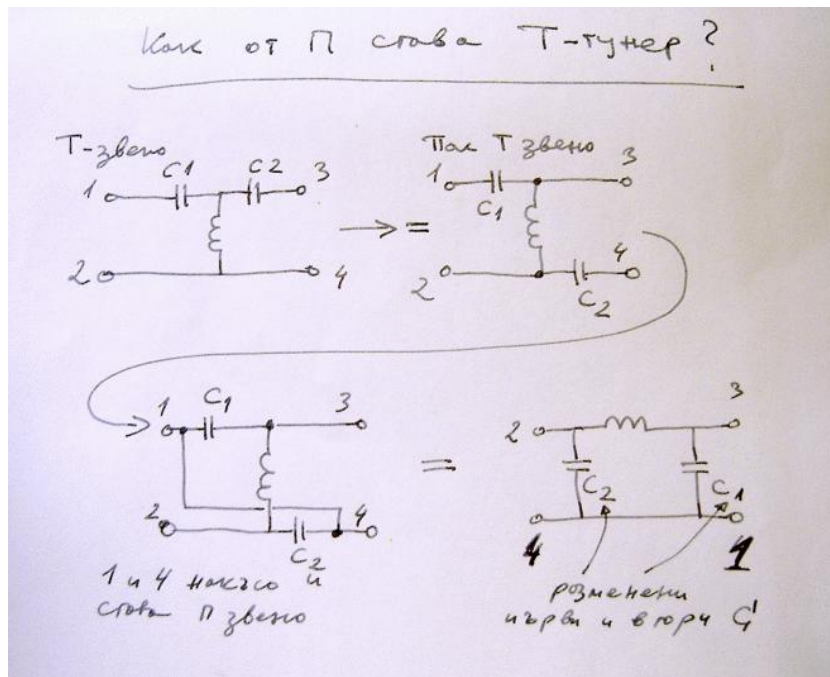 Как от П става Т-тунер?
Т-звено
C1 C2
1 3
2 4
Пак Т звено
1 3
C1
2 4
C2
1 C1 3
2 4
C2
1 и 4 накъсо и
става П звено
2 3
C2 C1
4 1
розменени
първи и втори C